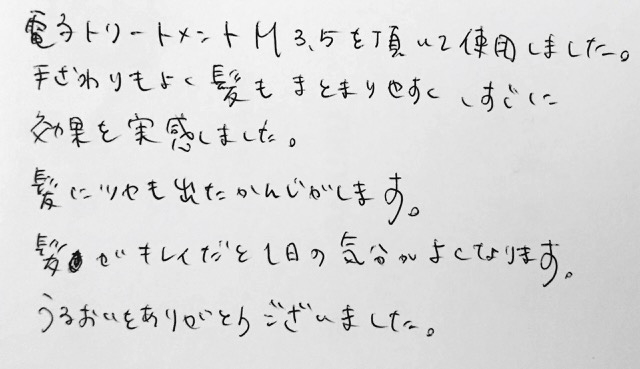 電子トリートメントM3.5を頂いて使用しました。
手ざわりもよく髪もまとまりやすく、すぐに
効果を実感しました。
髪にツヤも出たかんじがします。
髪がキレイだと1日の気分がよくなります。
うるおいをありがとうございました。